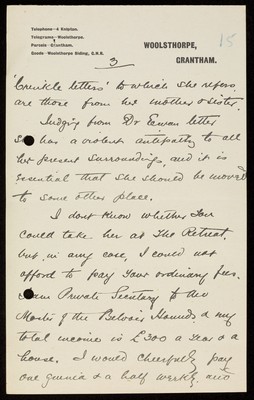 Telephone—4 Knipton.
Telegrams—Woolsthorpe.
Parcels—Grantham.
Goods—Woolsthorpe Siding, G.N.R.
15
WOOLSTHORPE,
GRANTHAM.
3
"Crinkle letters" to which she refers
are those from her mother & sister.
Judging from Dr letter
she has a violent antipathy to all
her present surroundings, and it is
essential that she should be moved
to some other place.
I dont know whether you
could take her at The Retreat.
but in any case, I could not
afford to pay your ordinary fees.
I am Private Secretary to the
Master of the Belvoir Hounds & my
total income is £300 a year & a
house. I would cheerfully pay
one guinea & a half weekly, and